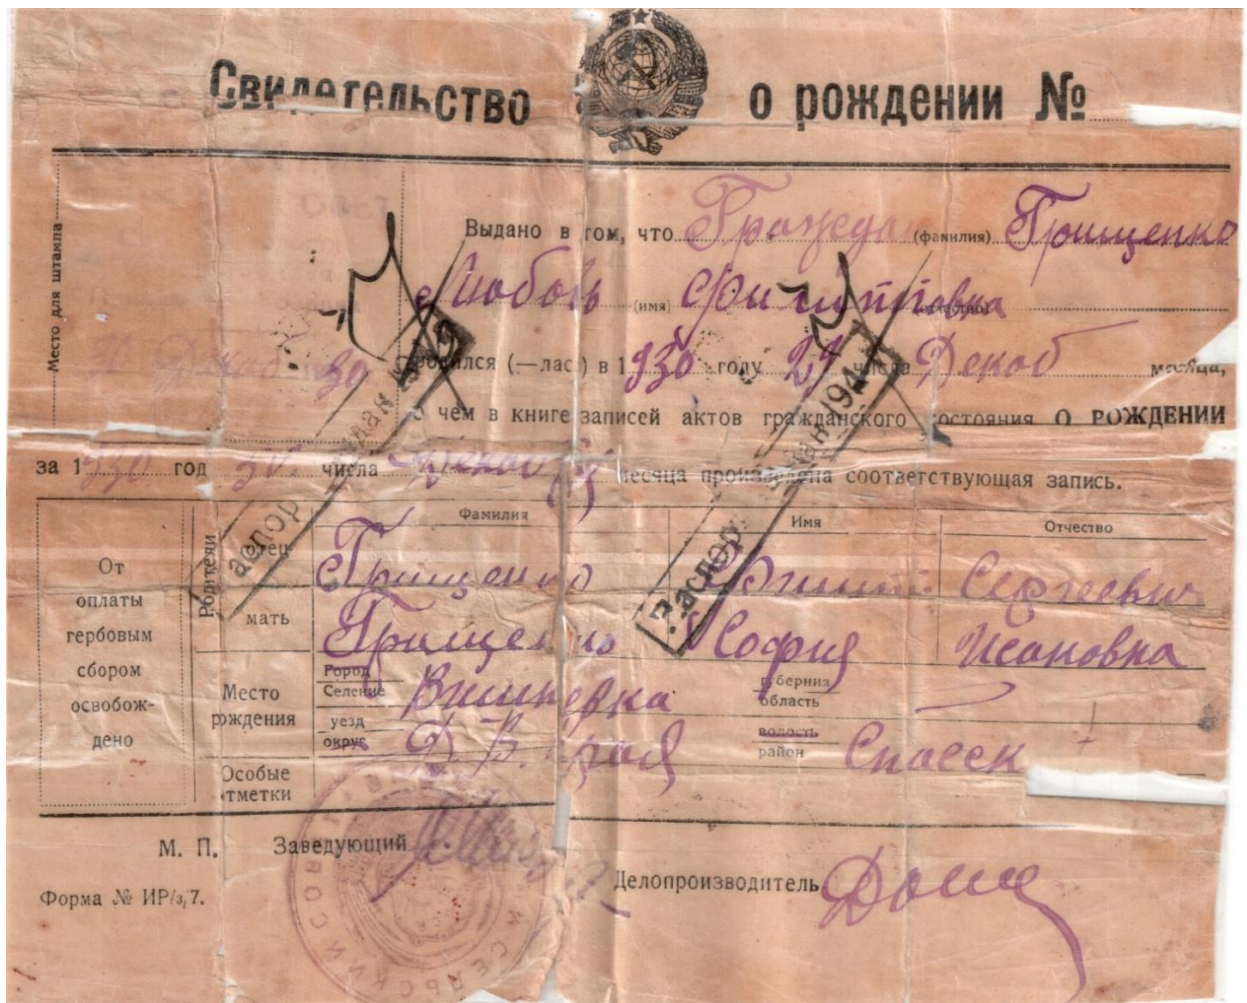 Свидетельство о рождении №
Место для штампа
Выдано в том, что Граждан (фамилия) Грищенко
Любовь (имя) Филипповна
родился (—лась) в 1930 году 29 числа Декаб месяца,
30 Декаб 30
о чем в книге записей актов гражданского состояния О РОЖДЕНИИ
за 1930 год 30 числа Декабря месяца произведена соответствующая запись.
От оплаты гербовым сбором освобож-дено
Родители
Фамилия Имя Отчество
отец Грищенко Филипп Сергеевич
мать Грищенко София Исановна
Место рождения
Город
Селение Вишневка
губерния
область
уезд
округ Д. В. край
волость
район Спасск
Особые отметки
М. П. Заведующий
Делопроизводитель
Форма № ИР/з,7.